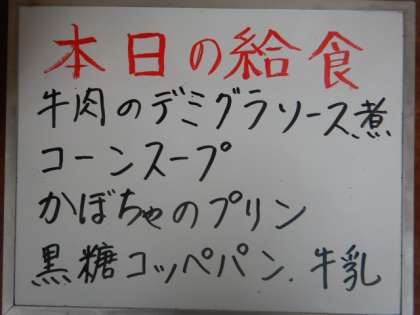 本日の給食
牛肉のデミグラソース煮
コーンスープ
かぼちゃのプリン
黒糖コッペパン.牛乳